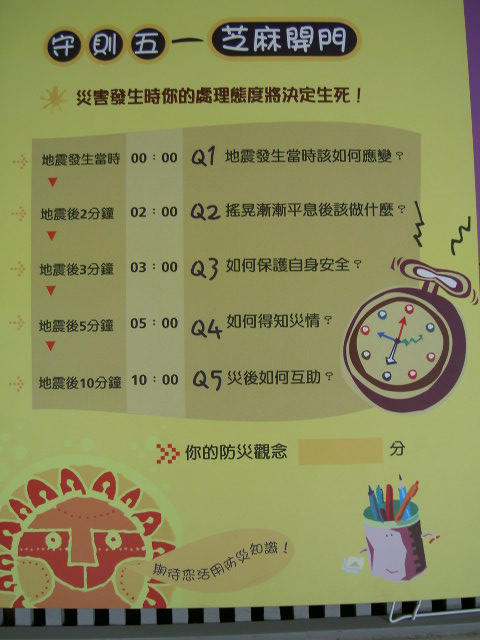 守則五—芝麻開門
災害發生時你的處理態度將決定生死！
地震發生當時 00：00 Q1 地震發生當時該如何應變？
地震後2分鐘 02：00 Q2 搖晃漸漸平息後該做什麼？
地震後3分鐘 03：00 Q3 如何保護自身安全？
地震後5分鐘 05：00 Q4 如何得知災情？
地震後10分鐘 10：00 Q5 災後如何互助？
你的防災觀念 分
期待您活用防災知識！